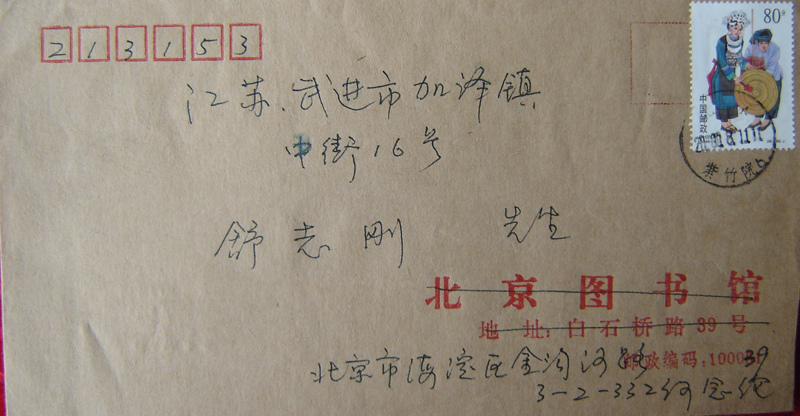 213153
80分
中国邮政
江苏.武进市加泽镇
中街16号
紫竹院
舒志刚 先生
北京图书馆
地址:白石桥路39号
邮政编码:100039
北京市海淀区金沟河
3-2-332何念伦